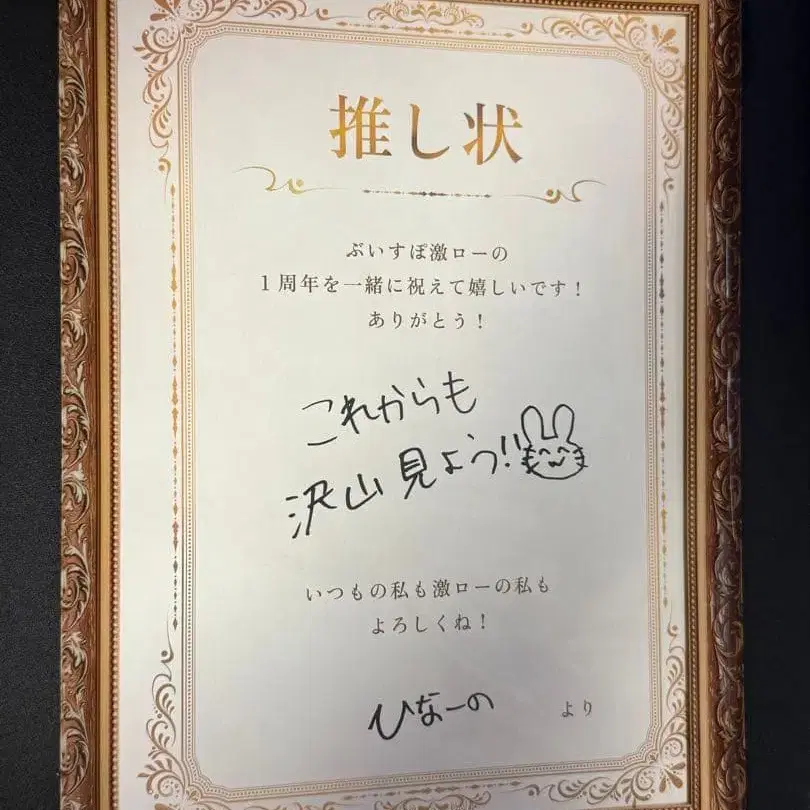 推し状
ぶいすぽ激ローの
1周年を一緒に祝えて嬉しいです！
ありがとう！
これからも
沢山見よう!!
いつもの私も激ローの私も
よろしくね！
ひなーの
より